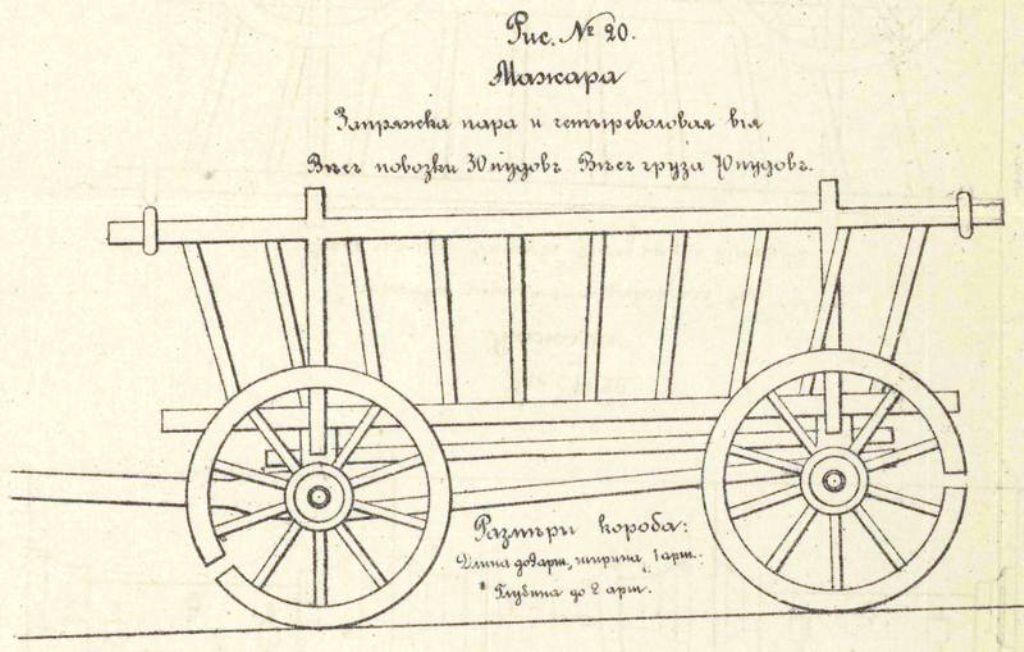 Рис. № 20.
Мажара
Запряжка пара и четыреволовая вія
Вѣсъ повозки 30 пудовъ Вѣсъ груза 70 пудовъ.
Размѣры короба:
Длина до арш., ширина 1 арш.
Глубина до 2 арш.